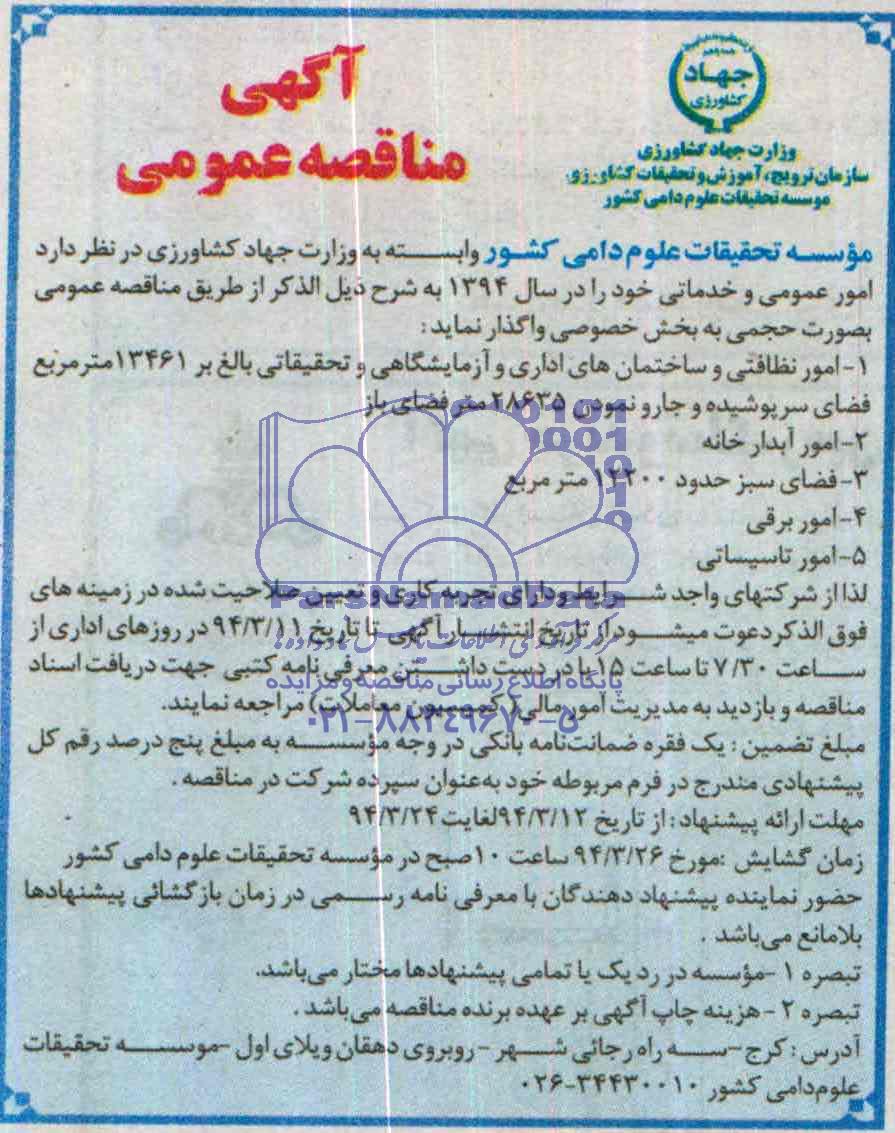 آگهی
مناقصه عمومی
جهاد
کشاورزی
وزارت جهاد کشاورزی
سازمان ترویج، آموزش و تحقیقات کشاورزی
موسسه تحقیقات علوم دامی کشور
مؤسسه تحقیقات علوم دامی کشور وابسته به وزارت جهاد کشاورزی در نظر دارد
امور عمومی و خدماتی خود را در سال ۱۳۹۴ به شرح ذیل الذکر از طریق مناقصه عمومی
بصورت حجمی به بخش خصوصی واگذار نماید:
۱- امور نظافتی و ساختمان های اداری و آزمایشگاهی و تحقیقاتی بالغ بر ۱۳۴۶۱ مترمربع
فضای سرپوشیده و جارو نمودن ۲۸۶۳۵ متر فضای باز
۲- امور آبدار خانه
۳- فضای سبز حدود ۱۲۲۰۰ متر مربع
۴- امور برقی
۵- امور تاسیساتی
لذا از شرکتهای واجد شرایط و دارای تجربه کاری و تعیین صلاحیت شده در زمینه های
فوق الذکر دعوت میشود از تاریخ انتشار آگهی تا تاریخ ۹۴/۳/۱۱ در روزهای اداری از
ساعت ۷/۳۰ تا ساعت ۱۵ با در دست داشتن معرفی نامه کتبی جهت دریافت اسناد
مناقصه و بازدید به مدیریت امور مالی (کمیسیون معاملات) مراجعه نمایند.
مبلغ تضمین: یک فقره ضمانت‌نامه بانکی در وجه مؤسسه به مبلغ پنج درصد رقم کل
پیشنهادی مندرج در فرم مربوطه خود به‌عنوان سپرده شرکت در مناقصه.
مهلت ارائه پیشنهاد: از تاریخ ۹۴/۳/۱۲ لغایت ۹۴/۳/۲۴
زمان گشایش: مورخ ۹۴/۳/۲۶ ساعت ۱۰ صبح در مؤسسه تحقیقات علوم دامی کشور
حضور نماینده پیشنهاد دهندگان با معرفی نامه رسمی در زمان بازگشائی پیشنهادها
بلامانع می‌باشد.
تبصره ۱- مؤسسه در رد یک یا تمامی پیشنهادها مختار می‌باشد.
تبصره ۲- هزینه چاپ آگهی بر عهده برنده مناقصه می‌باشد.
آدرس: کرج- سه راه رجائی شهر- روبروی دهقان ویلای اول- موسسه تحقیقات
علوم‌دامی کشور ۰۲۶-۳۴۴۳۰۰۱۰
ParsNamadData
پایگاه اطلاع رسانی مناقصه و مزایده
۰۲۱-۸۸۳۴۹۶۷۰-۵